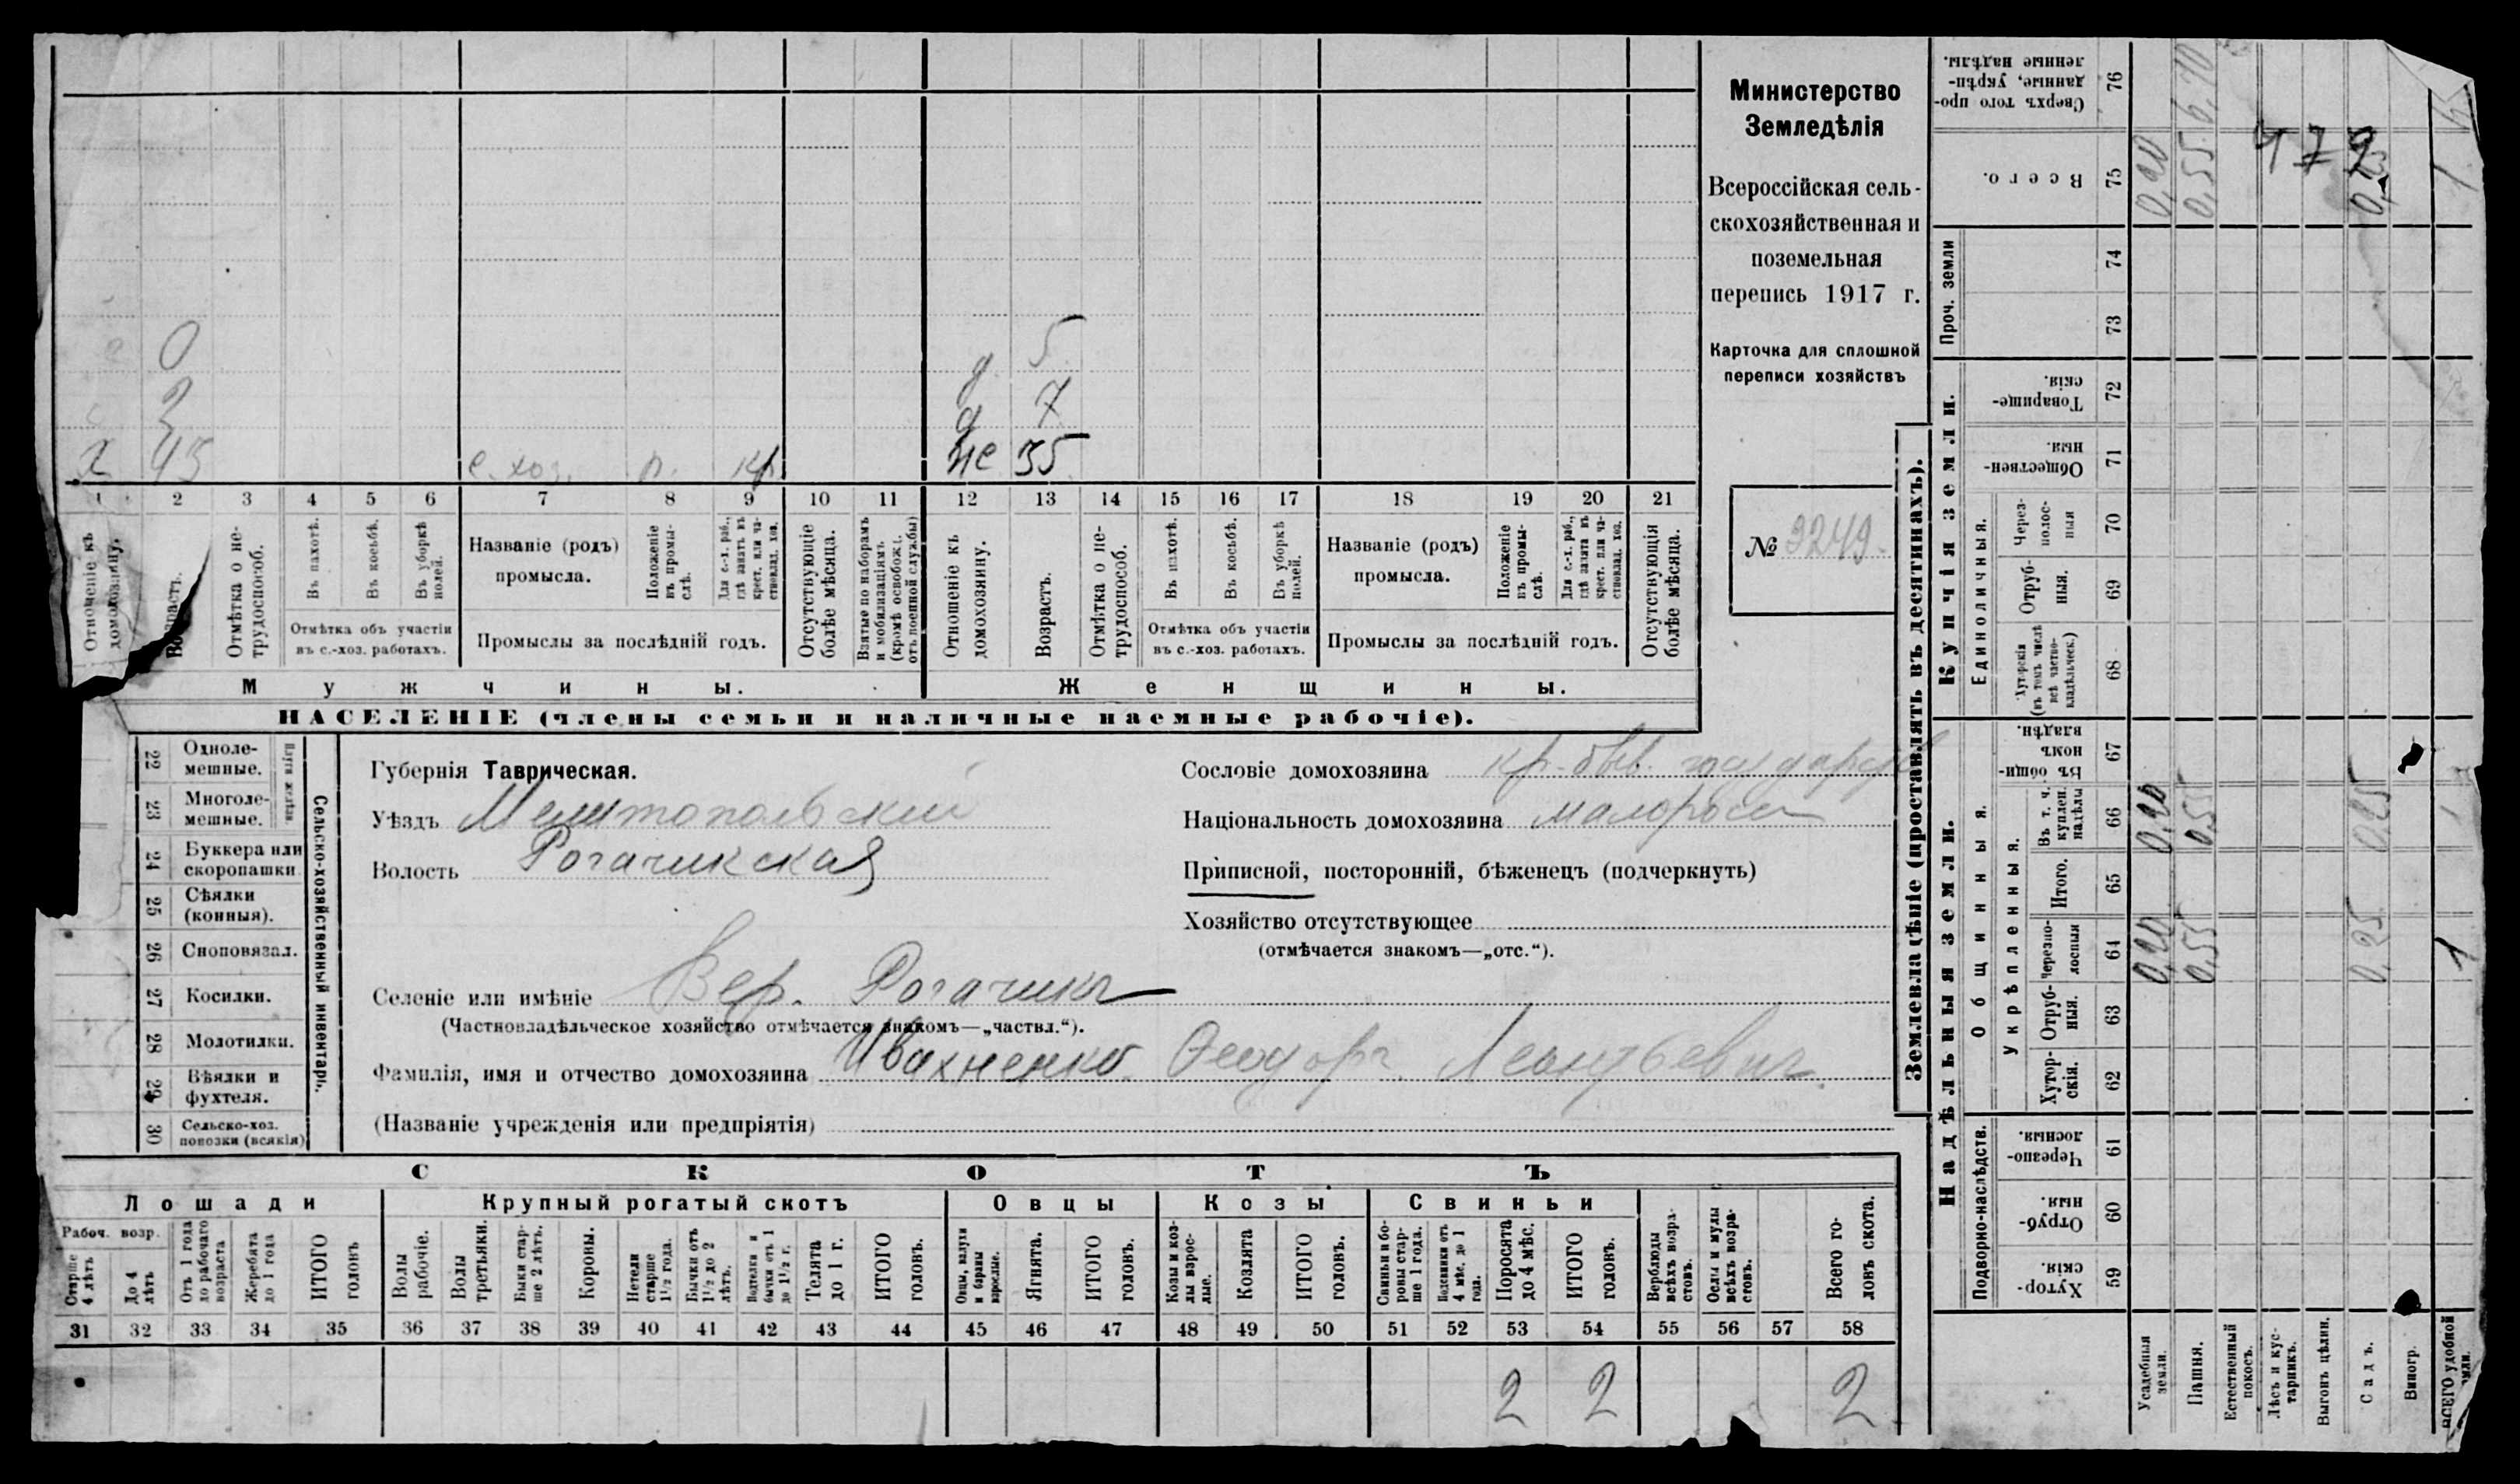 Министерство
Земледѣлія
Всероссійская сель-
скохозяйственная и
поземельная
перепись 1917 г.
Карточка для сплошной
переписи хозяйствъ
№ 3249.
0
2
х 45 с. хоз. п. кр.
д. 5
д 7
же 35
1 2 3 4 5 6 7 8 9 10 11 12 13 14 15 16 17 18 19 20 21
Отношеніе къ домохозяину.
Возрастъ.
Отмѣтка о не-трудоспособ.
Въ пахотѣ.
Въ косьбѣ.
Въ уборкѣ полей.
Отмѣтка объ участіи
въ с.-хоз. работахъ.
Названіе (родъ)
промысла.
Положеніе въ промы-слѣ.
Для с.-х. раб., гдѣ занятъ въ крест. или ча-стновлад. хоз.
Промыслы за послѣдній годъ.
Отсутствующіе болѣе мѣсяца.
Взятые по наборамъ и мобилизаціямъ (кромѣ освобожд. отъ военной службы)
Отношеніе къ домохозяину.
Возрастъ.
Отмѣтка о не-трудоспособ.
Въ пахотѣ.
Въ косьбѣ.
Въ уборкѣ полей.
Отмѣтка объ участіи
въ с.-хоз. работахъ.
Названіе (родъ)
промысла.
Положеніе въ промы-слѣ.
Для с.-х. раб., гдѣ занята въ крест. или ча-стновлад. хоз.
Промыслы за послѣдній годъ.
Отсутствующія болѣе мѣсяца.
Мужчины.
Женщины.
НАСЕЛЕНІЕ (члены семьи и наличные наемные рабочіе).
Сельско-хозяйственный инвентарь.
22 Однолe-мешные.
23 Многоле-мешные.
24 Буккера или скоропашки
25 Сѣялки (конныя).
26 Сноповязал.
27 Косилки.
28 Молотилки.
29 Вѣялки и фухтеля.
30 Сельско-хоз. повозки (всякія)
Губернія Таврическая.
Уѣздъ Мелитопольский
Волость Рогачикская
Селеніе или имѣніе Вер. Рогачикъ
(Частновладѣльческое хозяйство отмѣчается знакомъ—„частвл.“).
Фамилія, имя и отчество домохозяина Ивахненко Ѳеодоръ Леонтьевич.
(Названіе учрежденія или предпріятія)
Сословіе домохозяина кр. быв. государств
Національность домохозяина малоросс
Приписной, посторонній, бѣженецъ (подчеркнуть)
Хозяйство отсутствующее
(отмѣчается знакомъ—„отс.“).
СКОТЪ
Лошади
Крупный рогатый скотъ
Овцы
Козы
Свиньи
Рабоч. возр.
Старше 4 лѣтъ
До 4 лѣтъ
Отъ 1 года до рабочаго возраста
Жеребята до 1 года
ИТОГО головъ
Волы рабочіе.
Волы третьяки.
Быки стар-ше 2 лѣтъ.
Коровы.
Нетели старше 1½ года.
Бычки отъ 1½ до 2 лѣтъ.
Телята до 1 г.
ИТОГО головъ.
Овцы, валухи и бараны взрослые.
Ягнята.
ИТОГО головъ.
Козы и коз-лы взрос-лые.
Козлята
ИТОГО головъ.
Свиньи и бо-ровы стар-ше 1 года.
Подсвинки отъ 4 мѣс. до 1 года.
Поросята до 4 мѣс.
ИТОГО головъ.
Верблюды всѣхъ возра-стовъ.
Ослы и мулы всѣхъ возра-стовъ.
Всего го-ловъ скота.
31 32 33 34 35 36 37 38 39 40 41 42 43 44 45 46 47 48 49 50 51 52 53 54 55 56 57 58
2 2 2
Землевладѣніе (проставлять въ десятинахъ).
Надѣльныя земли.
Купчія земли.
Проч. земли
Подворно-наслѣдств.
Общинныя.
Укрѣпленныя.
Единоличныя.
Хутор-скія. 59
Отруб-ныя. 60
Черезпо-лосныя. 61
Хутор-скія. 62
Отруб-ныя. 63
Черезпо-лосныя 64
Итого. 65
Въ т. ч. куплен. надѣлы 66
Въ общин-номъ владѣн. 67
Хуторскія (въ томъ числѣ всѣ частно-владѣльческ.) 68
Отруб-ныя. 69
Через-полос-ныя 70
Обществен-ныя 71
Товарище-скія. 72
73
74
Всего. 75
Сверхъ того про-данные, укрѣп-ленные надѣлы. 76
Усадебныя земли. 0,20 0,20 0,20
Пашня. 0,55 0,55 0,55
Естественный покосъ.
Лѣсъ и кус-тарникъ.
Выгонъ цѣлин.
Садъ. 0,25 0,25 0,25
Виногр.
ВСЕГО удобной земли. 1 1 1
479